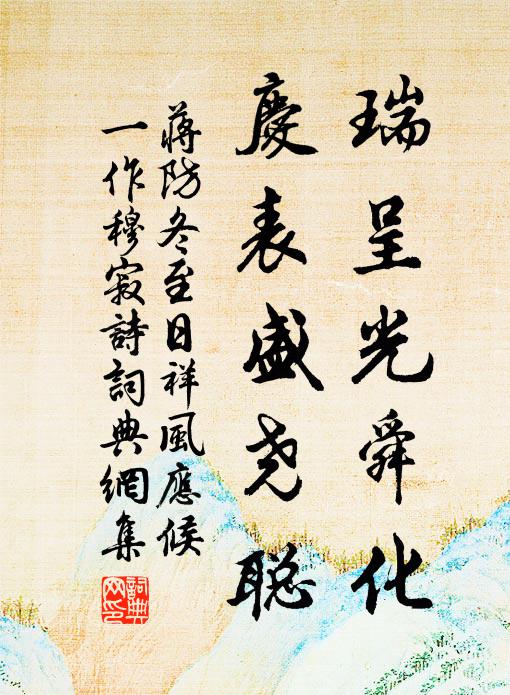 瑞呈光舜化
慶表盛尧聪
蔣防冬至日祥風應候
一作穆寂詩詞典網集
詞典网印